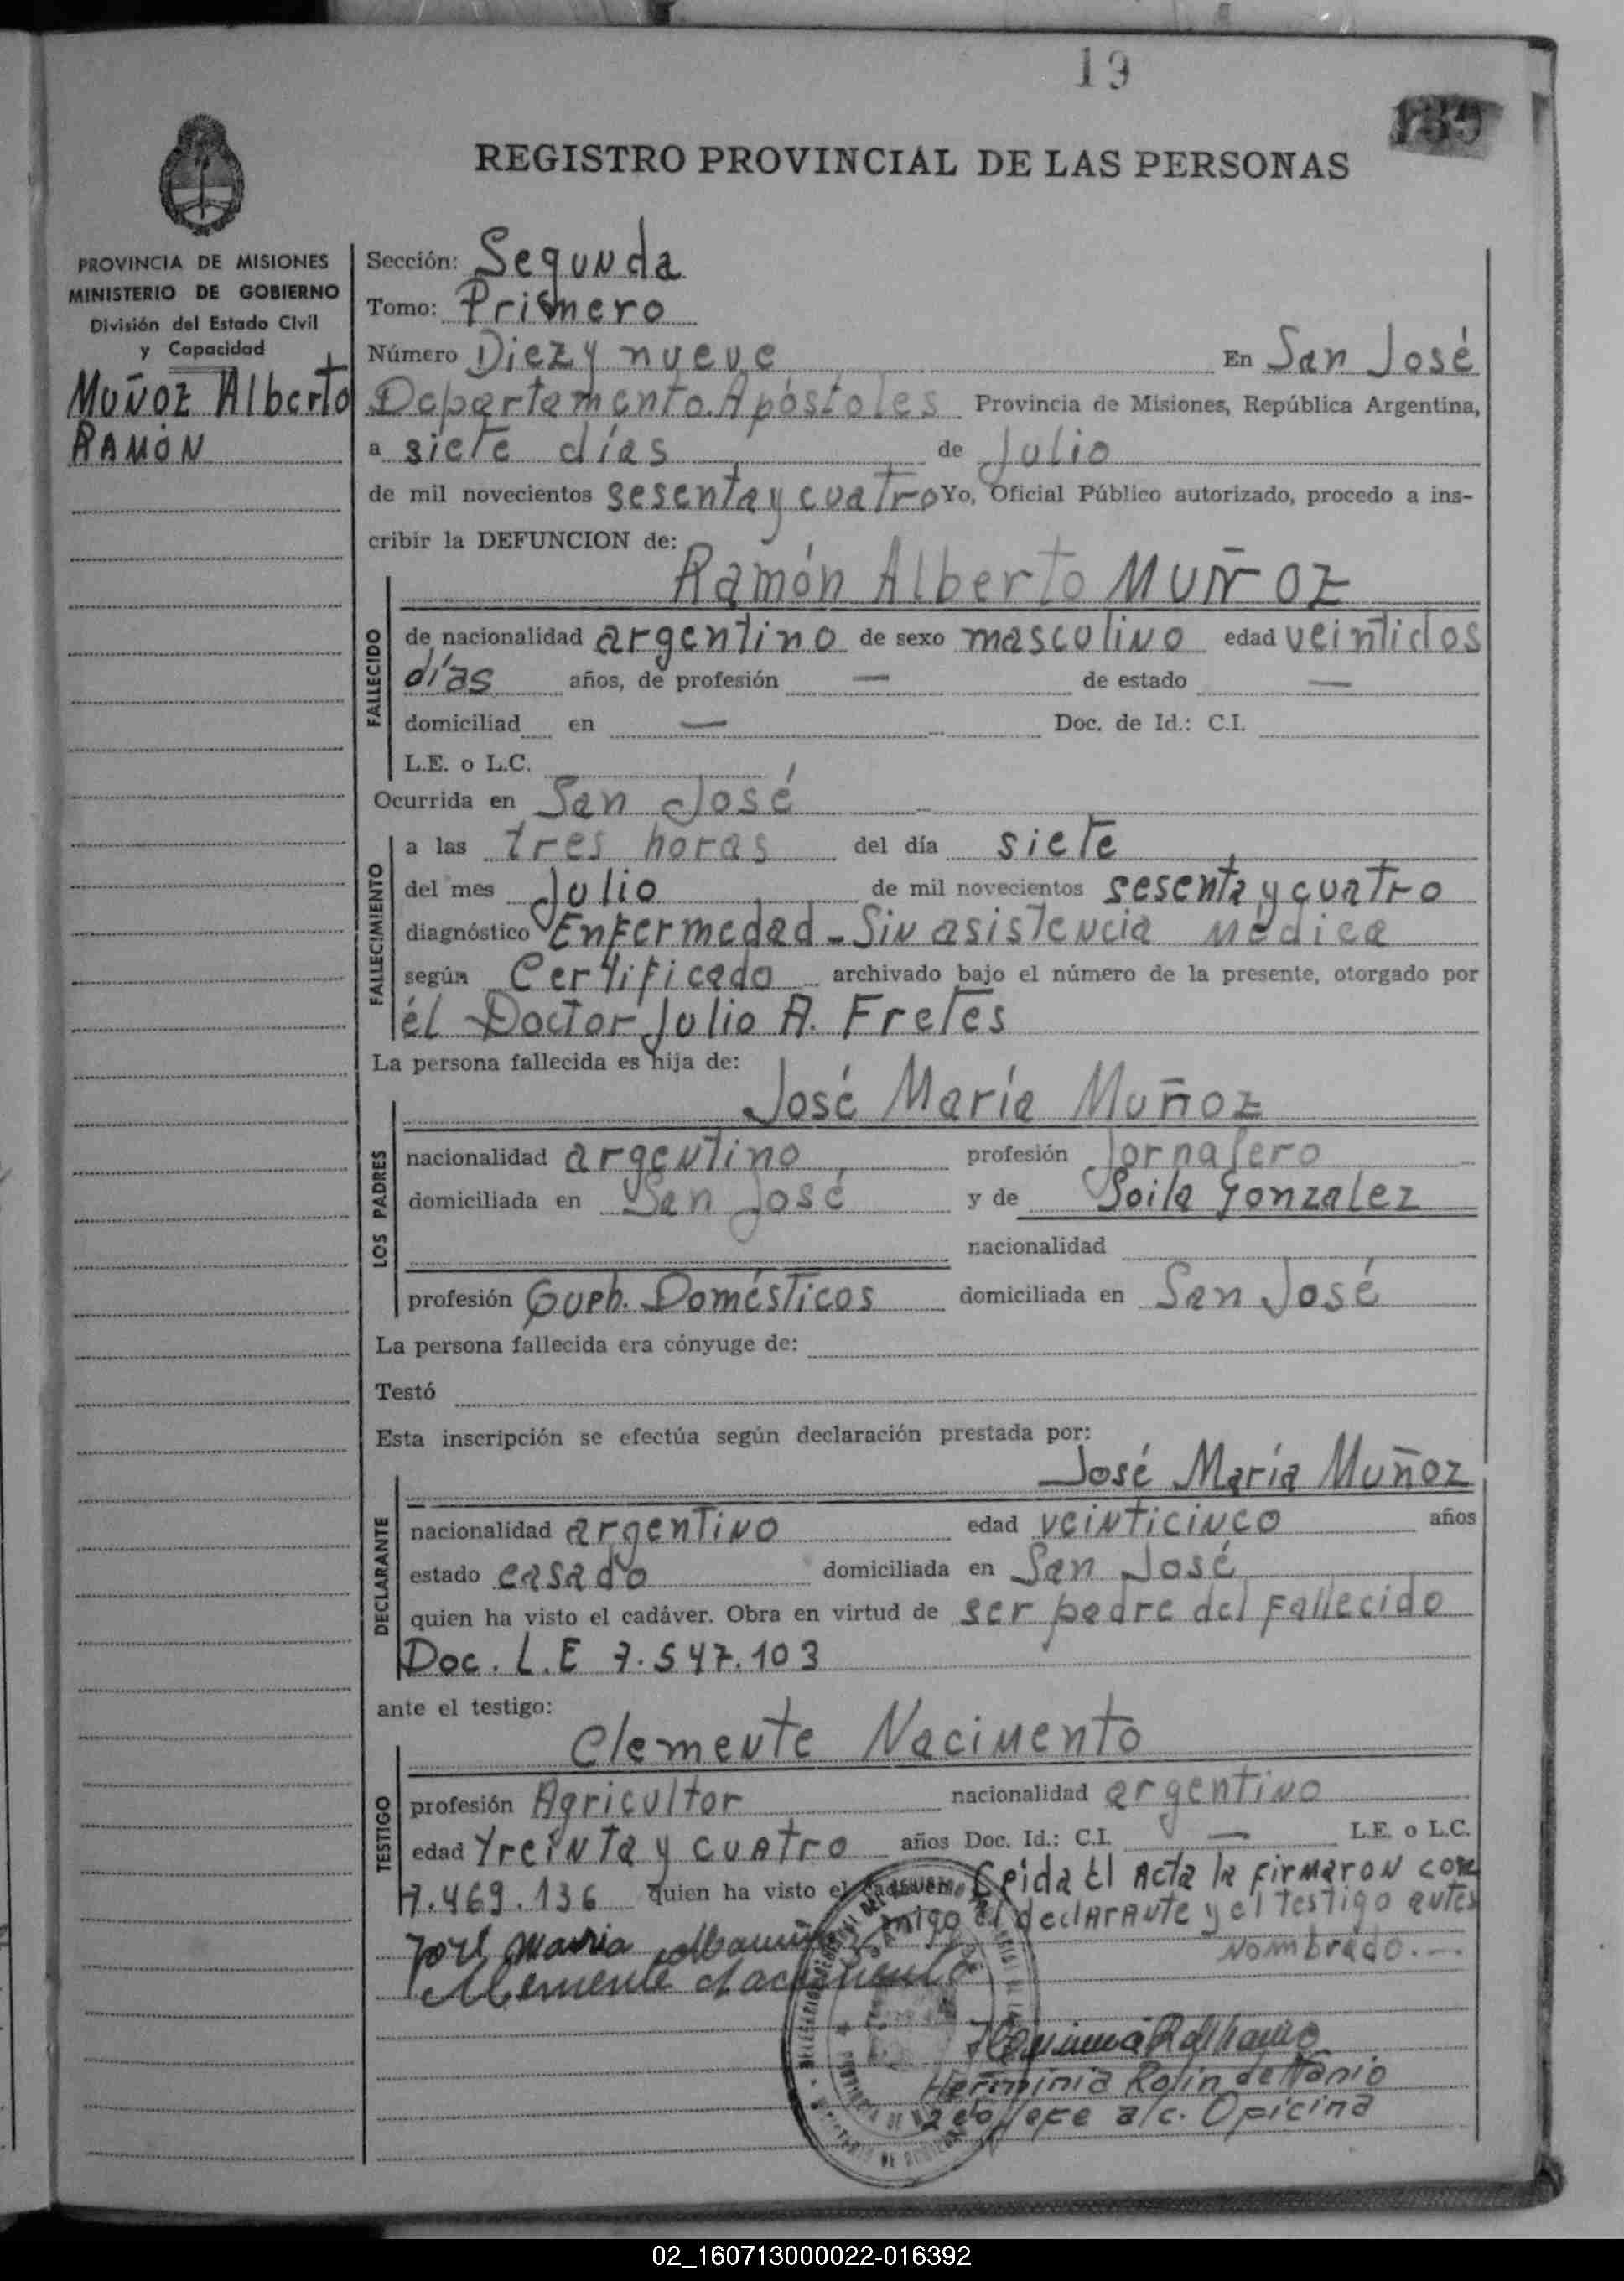 19
REGISTRO PROVINCIAL DE LAS PERSONAS
PROVINCIA DE MISIONES
MINISTERIO DE GOBIERNO
División del Estado Civil
y Capacidad
Muñoz Alberto
RAMÓN
Sección: Segunda
Tomo: Primero
Número Diez y nueve En San José
Departamento Apóstoles Provincia de Misiones, República Argentina,
a siete días de Julio
de mil novecientos sesenta y cuatro Yo, Oficial Público autorizado, procedo a ins-
cribir la DEFUNCION de:
Ramón Alberto MUÑOZ
FALLECIDO
de nacionalidad argentino de sexo masculino edad veintidos
días años, de profesión — de estado —
domiciliad en — Doc. de Id.: C.I.
L.E. o L.C.
Ocurrida en San José
FALLECIMIENTO
a las tres horas del día siete
del mes Julio de mil novecientos sesenta y cuatro
diagnóstico Enfermedad - Sin asistencia médica
según Certificado archivado bajo el número de la presente, otorgado por
él Doctor Julio A. Fretes
La persona fallecida es hija de:
José María Muñoz
LOS PADRES
nacionalidad argentino profesión Jornalero
domiciliada en San José y de Soila Gonzalez
nacionalidad
profesión Queh. Domésticos domiciliada en San José
La persona fallecida era cónyuge de:
Testó
Esta inscripción se efectúa según declaración prestada por:
José María Muñoz
DECLARANTE
nacionalidad argentino edad veinticinco años
estado casado domiciliada en San José
quien ha visto el cadáver. Obra en virtud de ser padre del fallecido
Doc. L.E 7.547.103
ante el testigo:
Clemente Nacimento
TESTIGO
profesión Agricultor nacionalidad argentino
edad treinta y cuatro años Doc. Id.: C.I. — L.E. o L.C.
7.469.136 quien ha visto el cadáver. Leida El Acta la firmaron con
migo el declarante y el testigo antes
nombrado.-
José Maria
Clemente Nacimento
Herminia Rolin de
2do Jefe a/c. Oficina
02_160713000022-016392